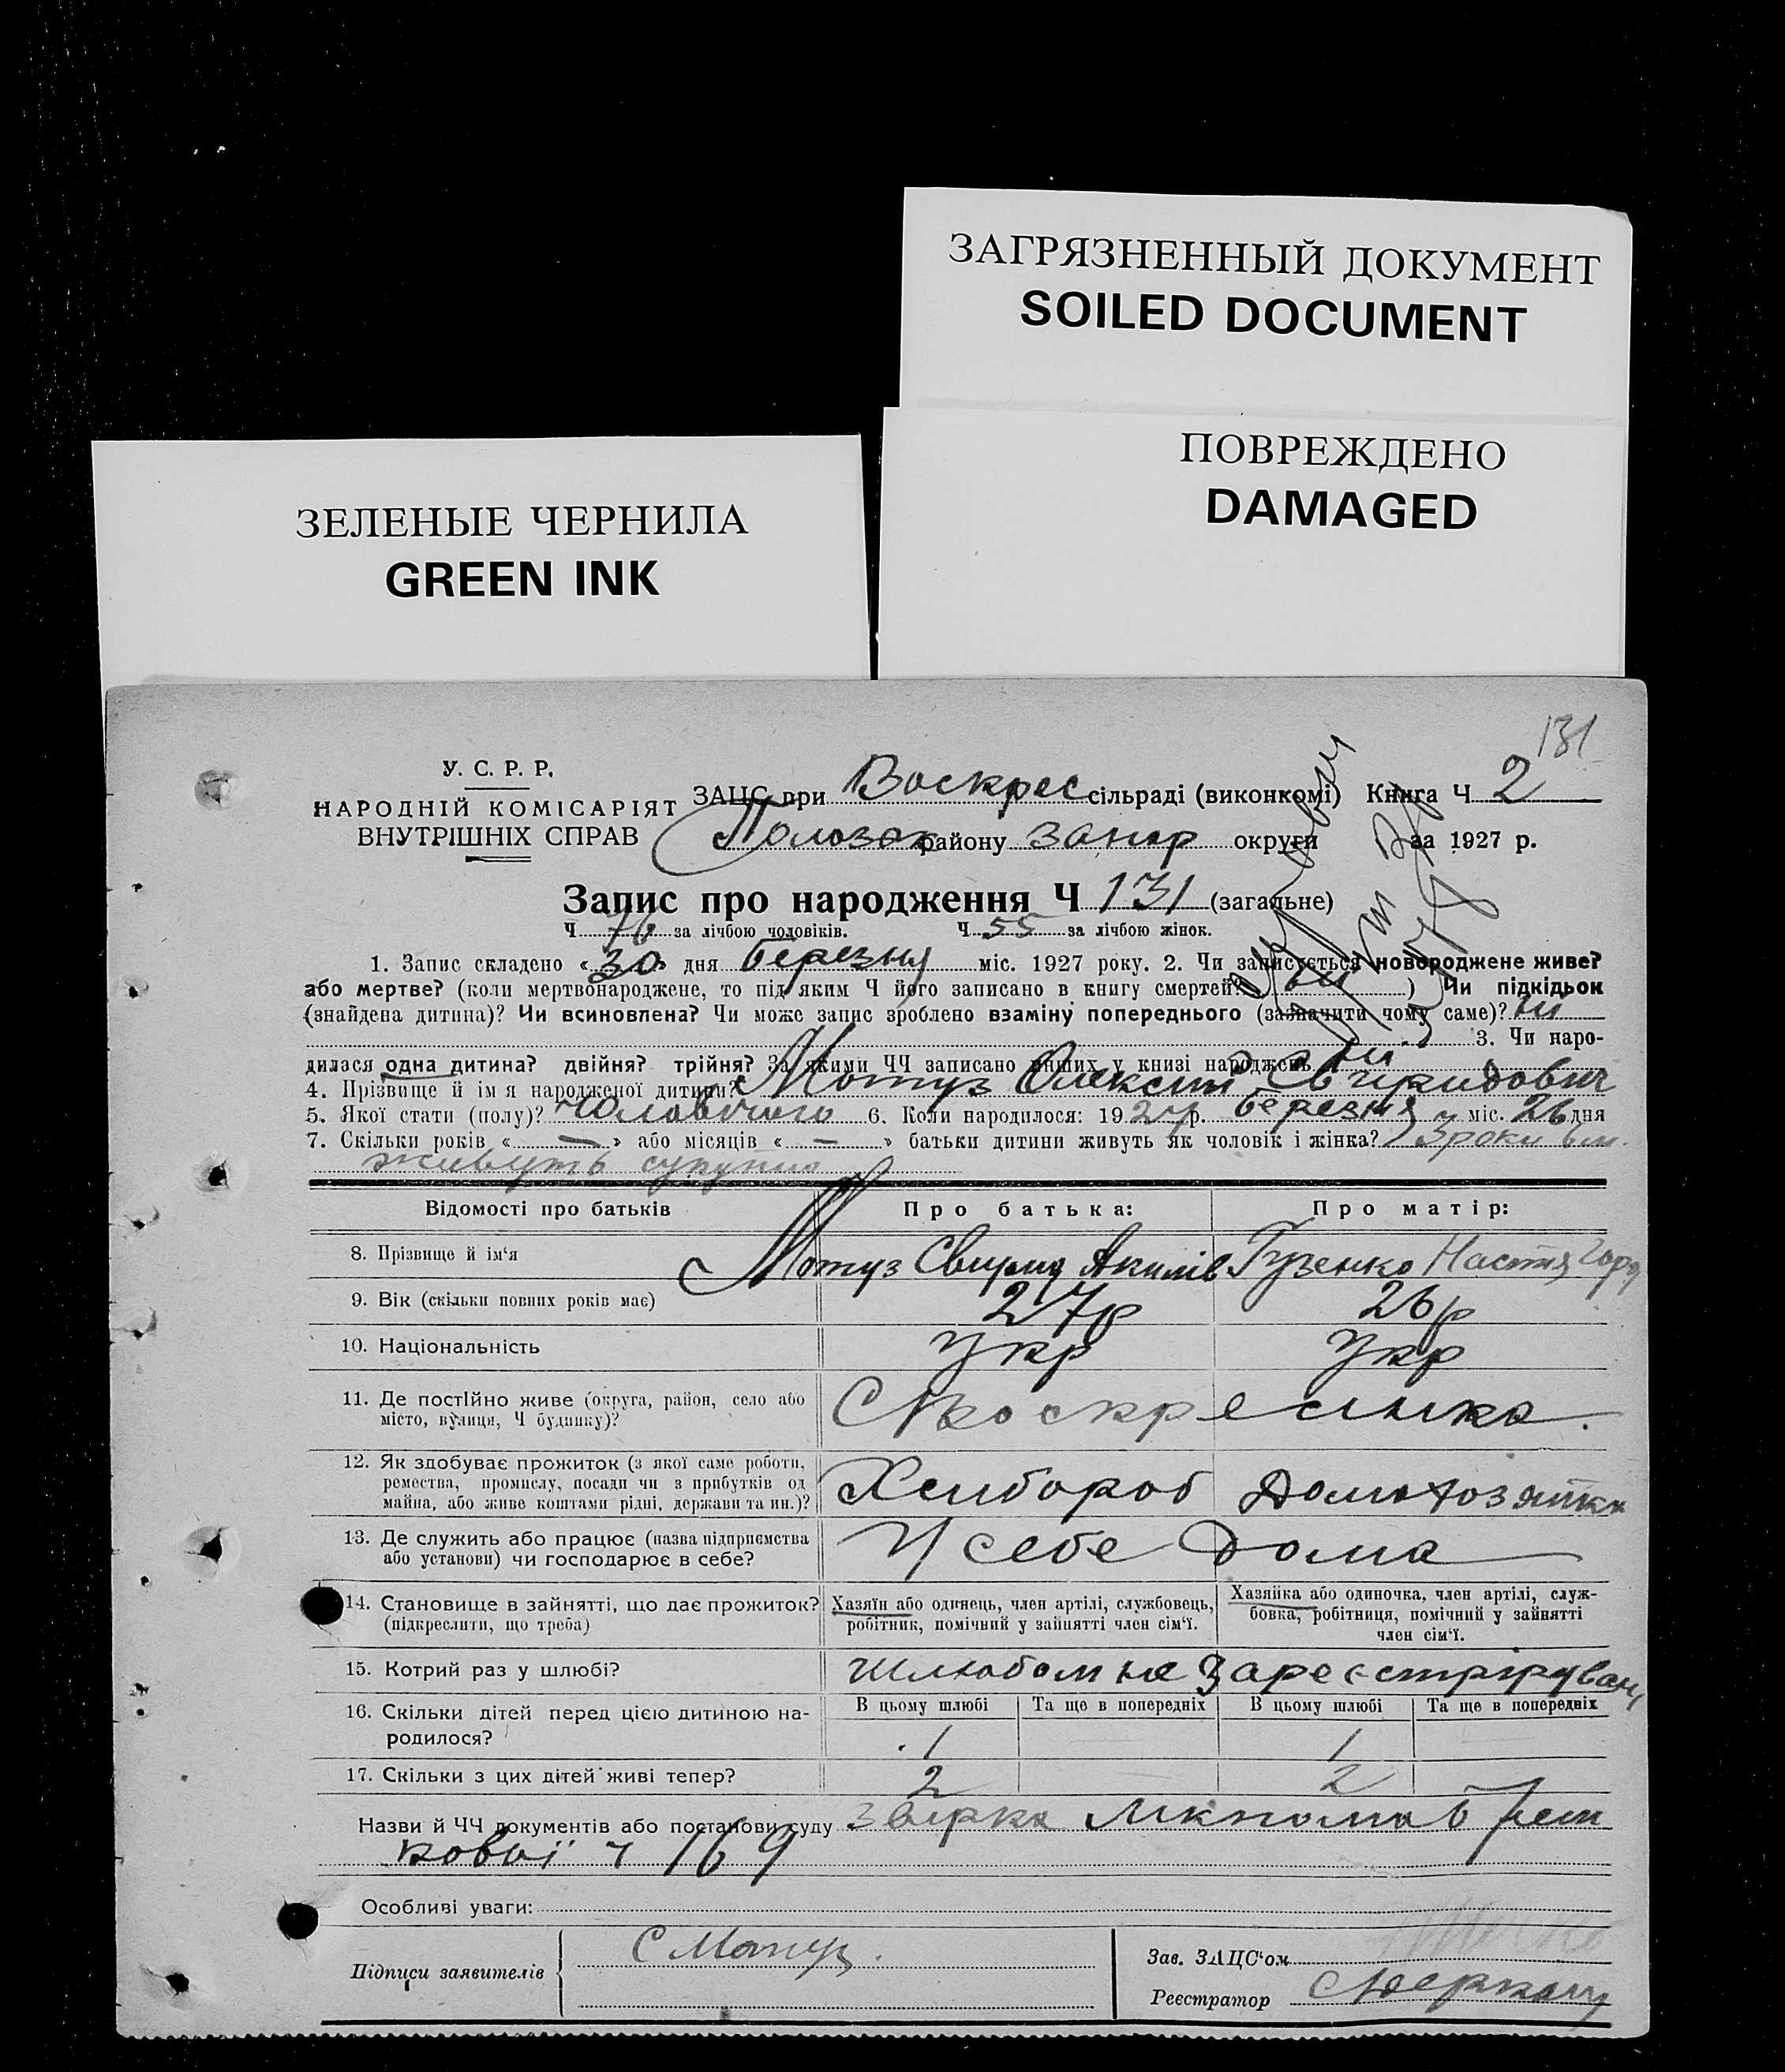 ЗАГРЯЗНЕННЫЙ ДОКУМЕНТ
SOILED DOCUMENT
ПОВРЕЖДЕНО
DAMAGED
ЗЕЛЕНЫЕ ЧЕРНИЛА
GREEN INK
131
У. С. Р. Р.
НАРОДНІЙ КОМІСАРІЯТ
ВНУТРІШНІХ СПРАВ
ЗАЦС при Воскрес сільраді (виконкомі) Книга Ч 2
Полозак району Запор округи за 1927 р.
Запис про народження Ч 131 (загальне)
Ч 76 за лічбою чоловіків. Ч 55 за лічбою жінок.
1. Запис складено «30» дня березня міс. 1927 року. 2. Чи записується новороджене живе?
або мертве? (коли мертвонароджене, то під яким Ч його записано в книгу смертей? ні) Чи підкідьок
(знайдена дитина)? Чи всиновлена? Чи може запис зроблено взаміну попереднього (зазначити чому саме)? ні
3. Чи наро-
дилася одна дитина? двійня? трійня? За якими ЧЧ записано инших у книзі народжень ні
4. Прізвище й ім я народженої дитини? Мотуз Олексій Свиридович
5. Якої стати (полу)? чоловічого 6. Коли народилося: 1927 р. березня міс. 26 дня
7. Скільки років « — » або місяців « — » батьки дитини живуть як чоловік і жінка? 3 роки 6 м.
живуть
Відомості про батьків Про батька: Про матір:
8. Прізвище й ім‘я Мотуз Свирид Акилів Гузенко Настя
9. Вік (скільки повних років має) 27 р 26 р
10. Національність Укр Укр
11. Де постійно живе (округа, район, село або
місто, вулиця, Ч будинку)? С Воскресинка.
12. Як здобуває прожиток (з якої саме роботи,
ремества, промислу, посади чи з прибутків од
майна, або живе коштами рідні, держави та ин.)? Хлибороб Домохозяйка
13. Де служить або працює (назва підприємства
або установи) чи господарює в себе? У себе дома
14. Становище в зайнятті, що дає прожиток?
(підкреслити, що треба)
Хазяїн або одинець, член артілі, службовець,
робітник, помічний у зайнятті член сім‘ї.
Хазяйка або одиночка, член артілі, служ-
бовка, робітниця, помічний у зайнятті
член сім‘ї.
15. Котрий раз у шлюбі? шлюбом не
16. Скільки дітей перед цією дитиною на-
родилося?
В цьому шлюбі Та ще в попередніх В цьому шлюбі Та ще в попередніх
1 1
17. Скільки з цих дітей живі тепер? 2 2
Назви й ЧЧ документів або постанови суду
ч 169
Особливі уваги:
Підписи заявителів С Мотуз.
Зав. ЗАЦС‘ом
Реєстратор